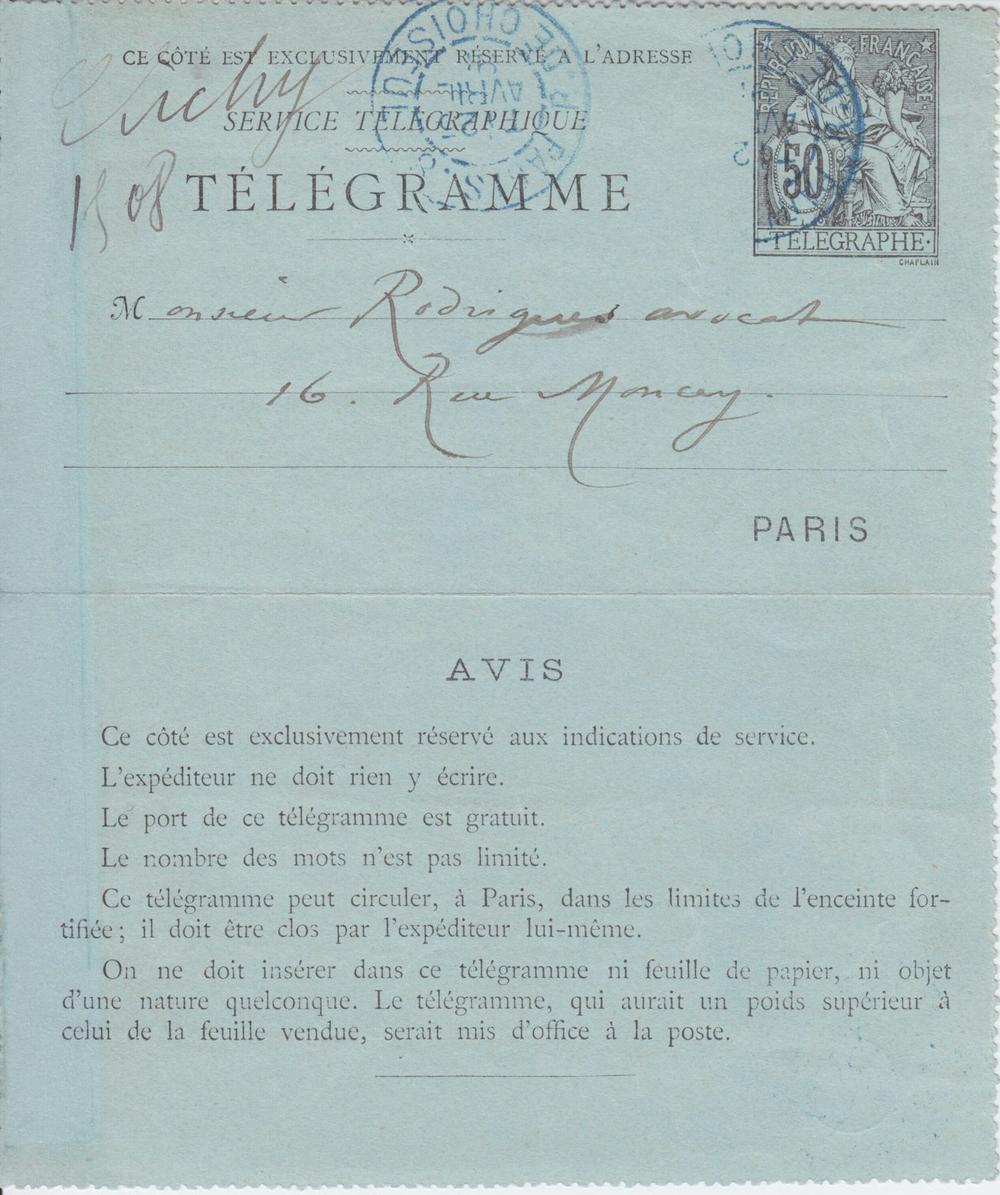 CE CÔTÉ EST EXCLUSIVEMENT RÉSERVÉ A L'ADRESSE
SERVICE TÉLÉGRAPHIQUE
TÉLÉGRAMME
RÉPUBLIQUE FRANÇAISE
50
TELEGRAPHE
CHAPLAIN
PARIS R. DE CHOISEUL
AVRIL
Monsieur Rodrigues avocat
16. Rue Moncey.
PARIS
AVIS
Ce côté est exclusivement réservé aux indications de service.
L'expéditeur ne doit rien y écrire.
Le port de ce télégramme est gratuit.
Le nombre des mots n'est pas limité.
Ce télégramme peut circuler, à Paris, dans les limites de l'enceinte for-
tifiée; il doit être clos par l'expéditeur lui-même.
On ne doit insérer dans ce télégramme ni feuille de papier, ni objet
d'une nature quelconque. Le télégramme, qui aurait un poids supérieur à
celui de la feuille vendue, serait mis d'office à la poste.